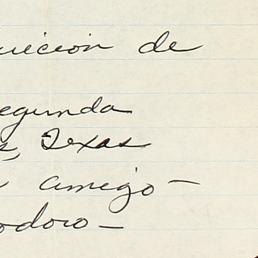 uicion de
egunda
s, Texas
amigo—
odoro—